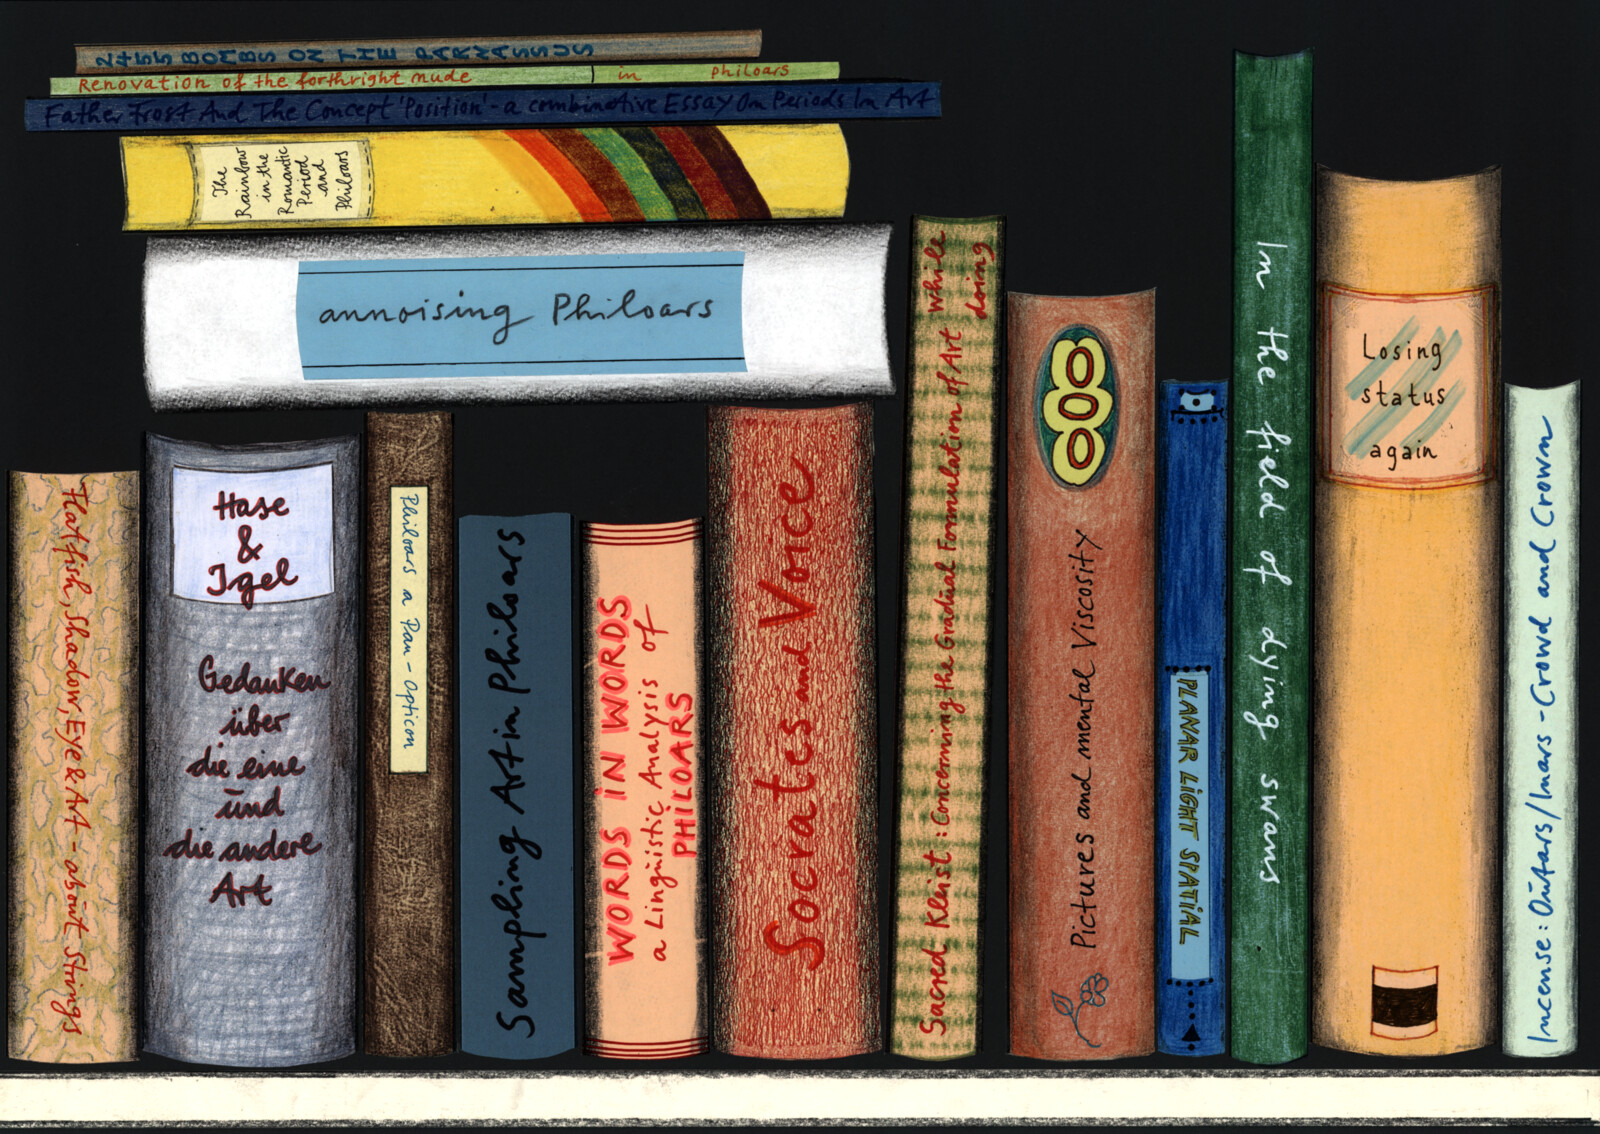 2455 BOMBS ON THE PARNASSUS
Renovation of the forthright nude | in philoars
Father Frost And The Concept 'Position' - a combinative Essay On Periods In Art
The
Rainbow
in the
Romantic
Period
and
Philoars
annoising Philoars
Flatfish, Shadow, Eye & Art - about Strings
Hase
&
Igel
Gedanken
über
die eine
und
die andere
Art
Philoars a Pan - Option
Sampling Art in Philoars
WORDS iN WORDS
a Linguistic Analysis of
PHILOARS
Socrates and Voice
Sacred Kleist : Concerning the Gradual Formulation of Art While
doing
Pictures and mental Viscosity
PLANAR LIGHT SPATIAL
In the field of dying swans
Losing
status
again
Incense : Outars/Inars - Crowd and Crown